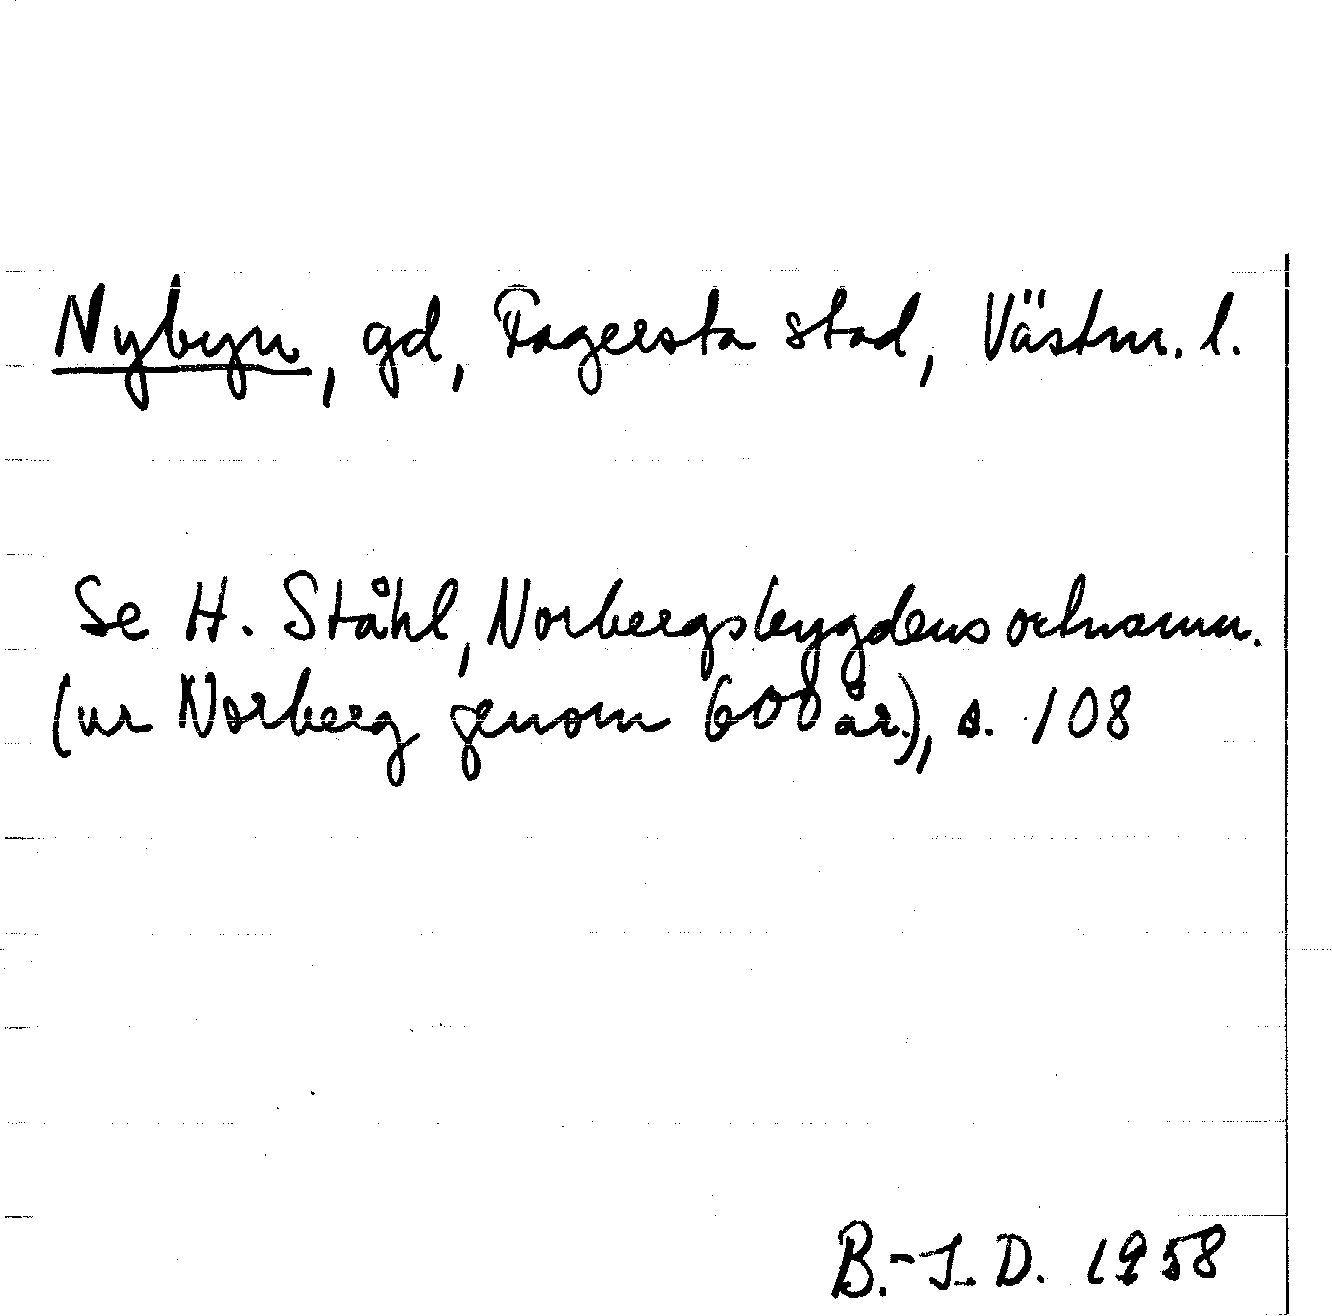 Nybyn, gd, Fagersta stad, Västm. l.
Se H. Ståhl, Norbergsbygdens ortnamn.
(ur Norberg genom 600 år.), s. 108
B.-I. D. 1958